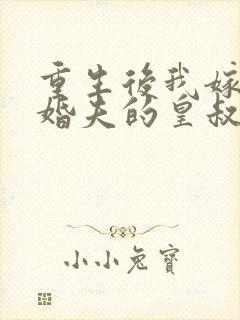 重生後我嫁
婚夫的皇叔
小小兔寶